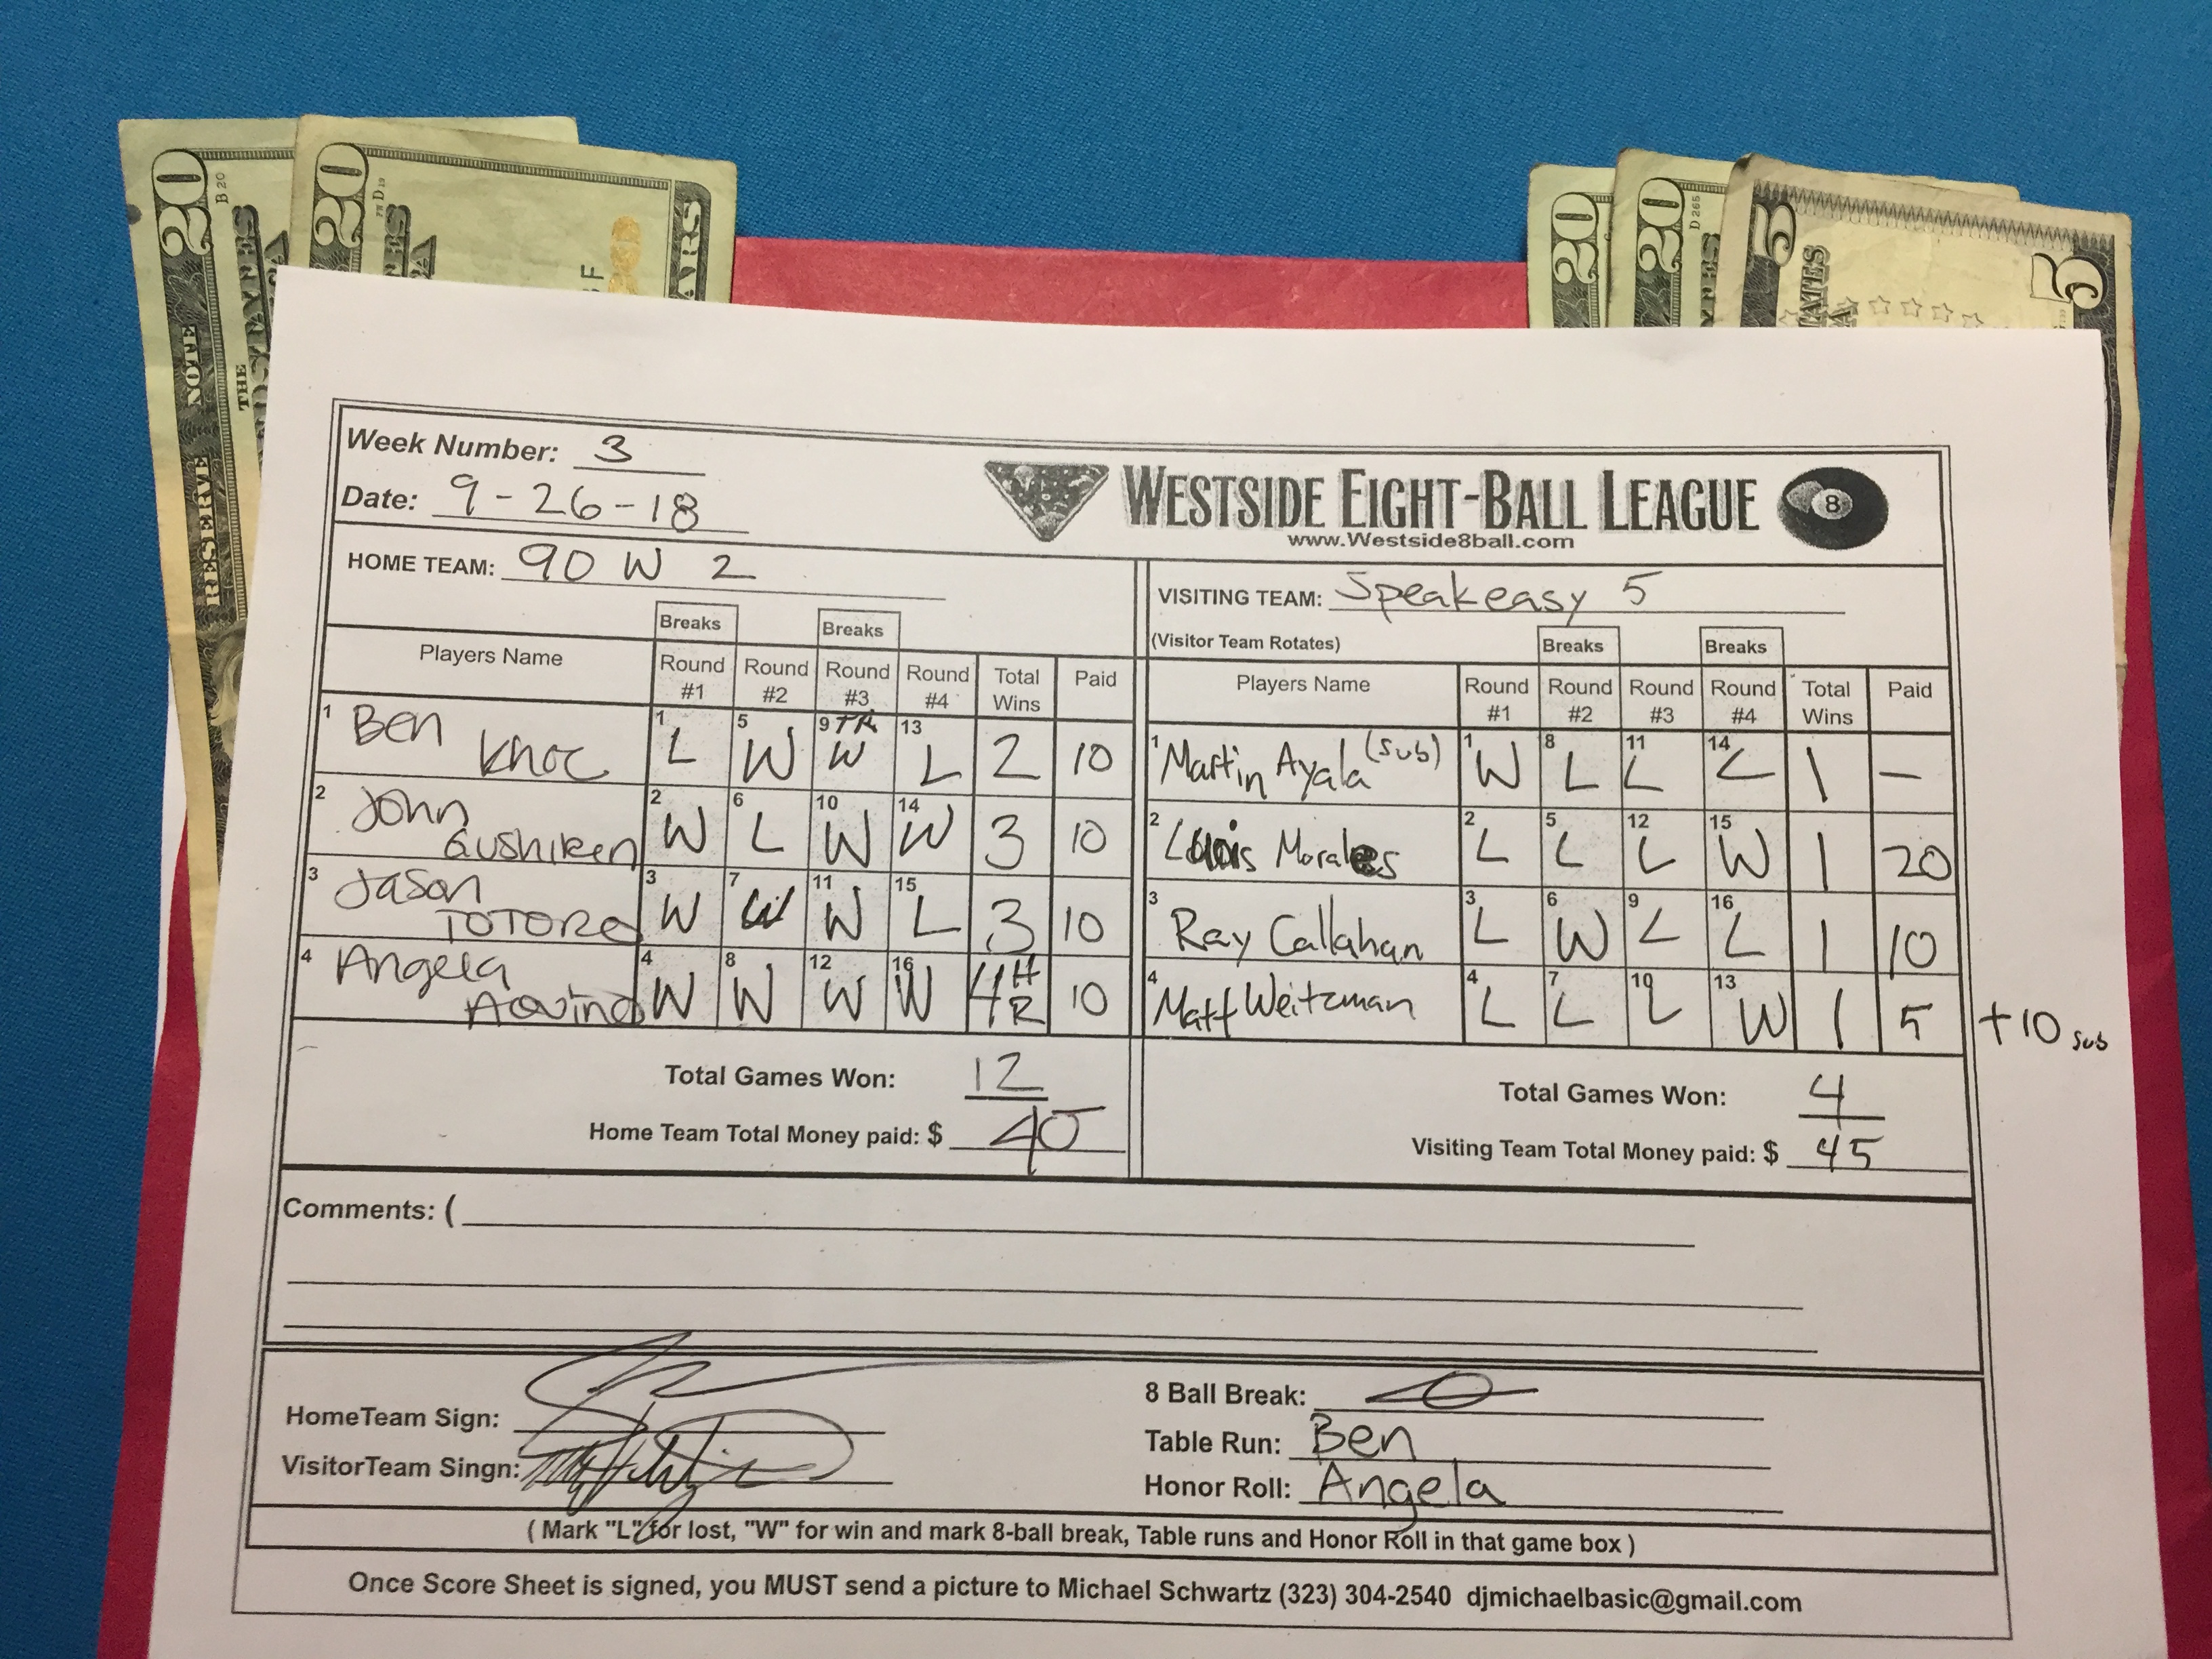 20 20 20 20 5 5
B 20
D 265
RESERVE NOTE
THE
Week Number: 3
Date: 9-26-18
WESTSIDE EIGHT-BALL LEAGUE 8
www.Westside8ball.com
HOME TEAM: 90 W 2
VISITING TEAM: Speakeasy 5
(Visitor Team Rotates)
Breaks Breaks Breaks Breaks
Players Name Round #1 Round #2 Round #3 Round #4 Total Wins Paid
Players Name Round #1 Round #2 Round #3 Round #4 Total Wins Paid
1 Ben Khoc 1 L 5 W 9 TR W 13 L 2 10
1 Martin Ayala (sub) 1 W 8 L 11 L 14 L 1 —
2 John Gushiken 2 W 6 L 10 W 14 W 3 10
2 Louis Morales 2 L 5 L 12 L 15 W 1 20
3 Jason TOTORa 3 W 7 W 11 W 15 L 3 10
3 Ray Callahan 3 L 6 W 9 L 16 L 1 10
4 Angela Aquino 4 W 8 W 12 W 16 W 4 HR 10
4 Matt Weitzman 4 L 7 L 10 L 13 W 1 5 +10 sub
Total Games Won: 12
Total Games Won: 4
Home Team Total Money paid: $ 40
Visiting Team Total Money paid: $ 45
Comments: (
HomeTeam Sign:
VisitorTeam Singn:
8 Ball Break:
Table Run: Ben
Honor Roll: Angela
( Mark "L" for lost, "W" for win and mark 8-ball break, Table runs and Honor Roll in that game box )
Once Score Sheet is signed, you MUST send a picture to Michael Schwartz (323) 304-2540 djmichaelbasic@gmail.com